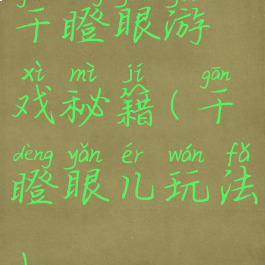 干瞪眼游
xì mì jí gān
戏秘籍(干
dèng yǎn ér wán fǎ
瞪眼儿玩法
)